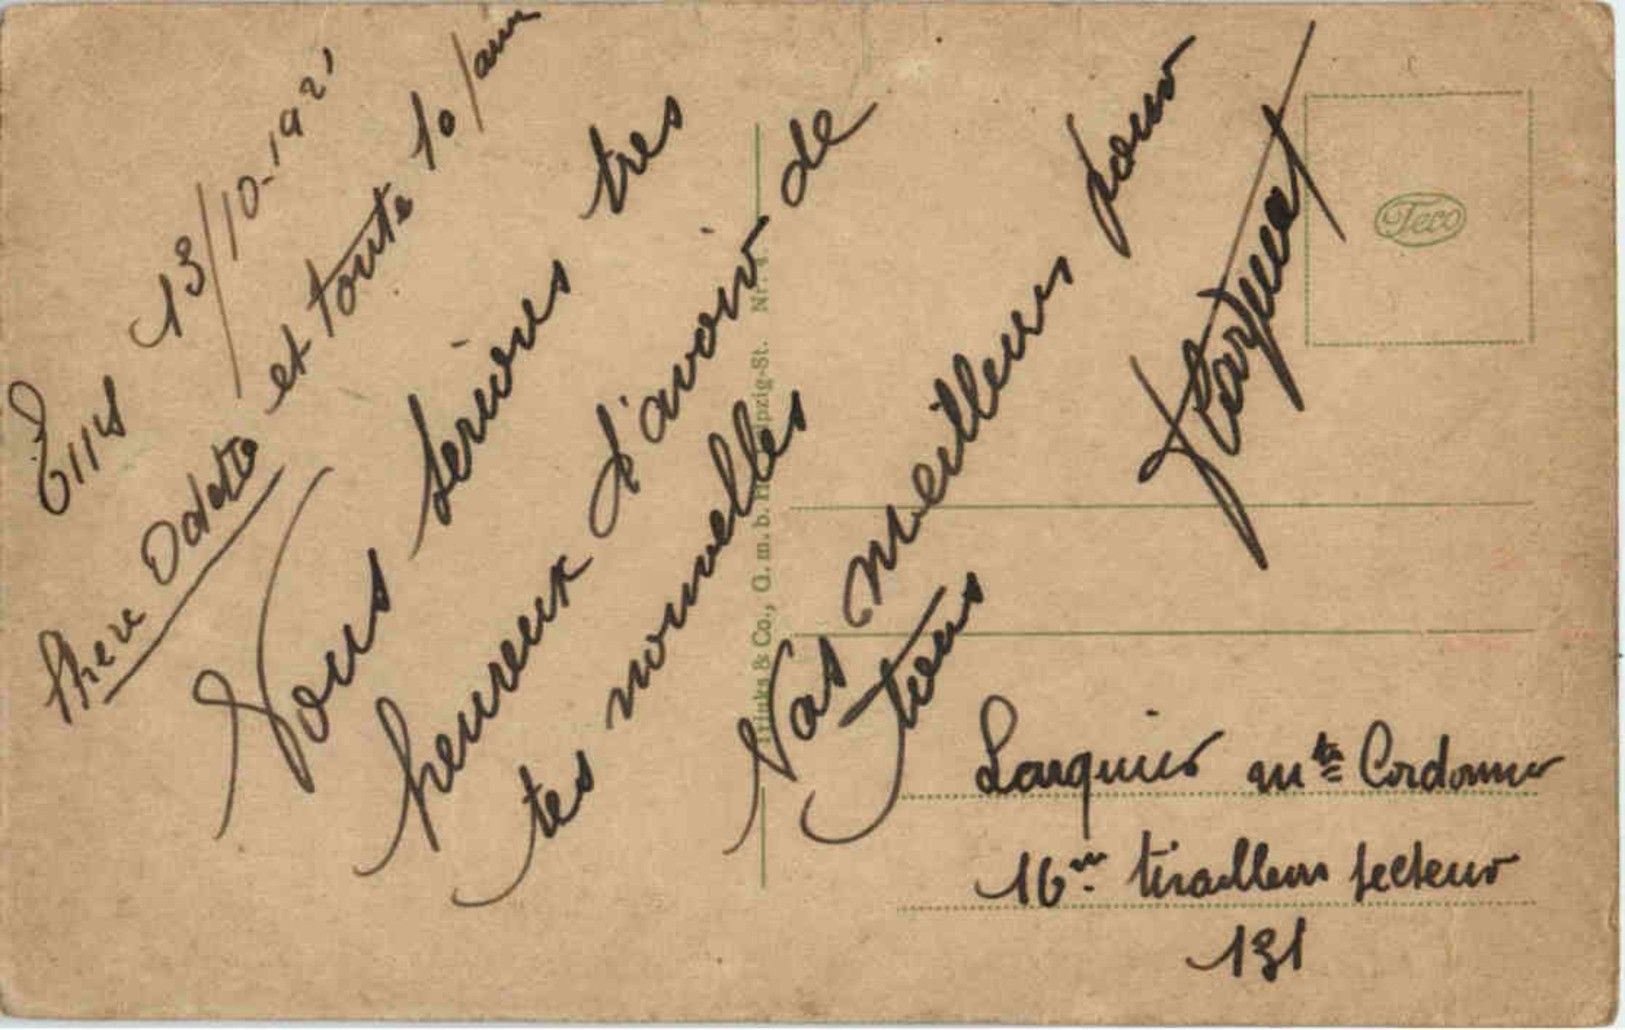 Ems 13/10-1921
Chere Odette et toute la fam
Nous serions tres
heureux d'avoir de
tes nouvelles
Nos meilleurs pour
tiens
Larquier
Larquier mte Cordonnier
16me tirailleurs secteur
131
Trinks & Co., G. m. b. H. Leipzig-St. Nr.
Teco